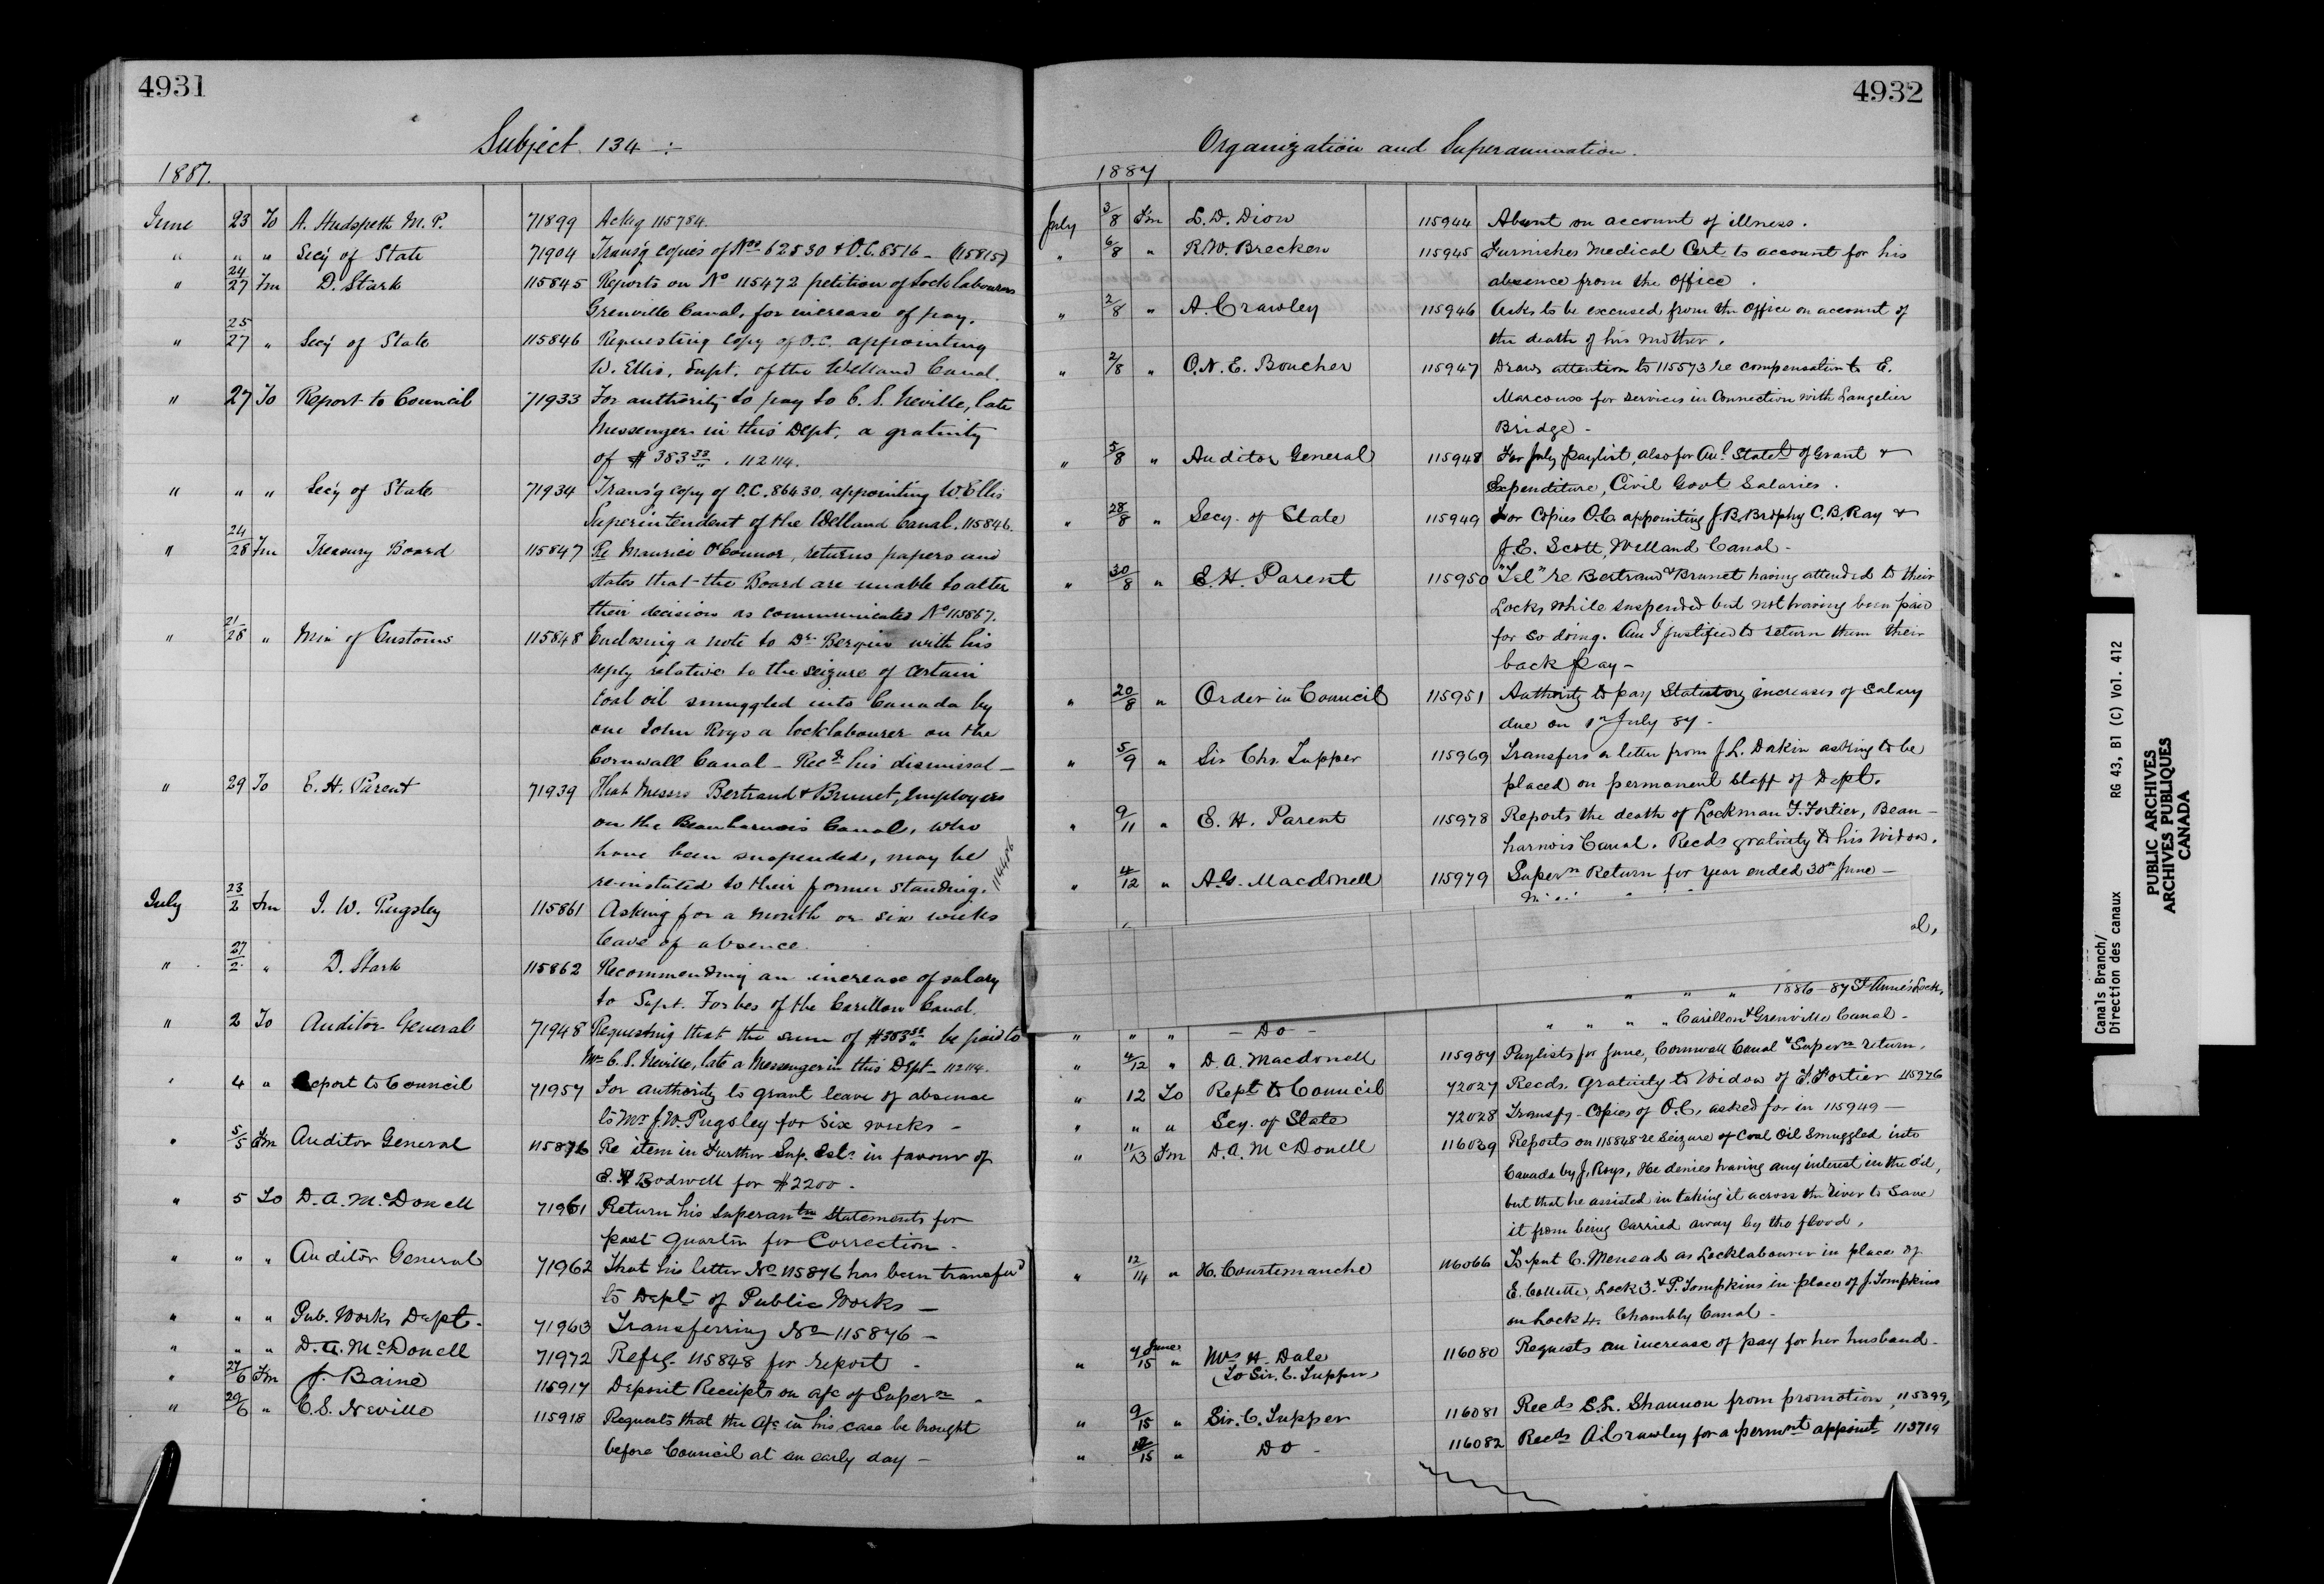 4931
Subject 134 :-
1887.
June 23 To A. Hudspeth M.P. 71899 Ackg 115784.
" " " Secy of State 71904 Transg copies of Nos 62530 & O.C. 8516 - (115815)
" 24/27 Fm D. Stark 115845 Reports on No 115472 petition of Lock labourers
Grenville Canal, for increase of pay.
" 25/27 " Secy of State 115846 Requesting Copy of O.C. appointing
W. Ellis, Supt. of the Welland Canal.
" 27 To Report to Council 71933 For authority to pay to C. S. Neville, late
Messenger in this Dept, a gratuity
of $383 33/" . 112114.
" " " Secy of State 71934 Trans'g copy of O.C. 86430, appointing W. Ellis
Superintendent of the Welland Canal. 115846.
" 24/28 Fm Treasury Board 115847 Re Maurice O'Connor, returns papers and
states that the Board are unable to alter
their decision as communicated No 115867.
" 21/28 " Min of Customs 115848 Enclosing a note to Dr. Bergin with his
reply relative to the seizure of certain
Coal oil smuggled into Canada by
one John Roys a locklabourer on the
Cornwall Canal - Recds his dismissal -
" 29 To E. H. Parent 71939 That Messrs Bertrand & Brunet, Employees
on the Beauharnois Canal, who
have been suspended, may be
re-instated to their former standing. 114406
July 23/2 Fm J. W. Pugsley 115861 Asking for a month or six weeks
leave of absence.
" 27/2 " D. Stark 115862 Recommending an increase of salary
to Supt. Forbes of the Carillon Canal.
" 2 To Auditor General 71948 Requesting that the sum of $383 33/" be paid to
Mr C. S. Neville, late a Messenger in this Dept - 112114.
" 4 " Report to Council 71957 For authority to grant leave of absence
to Mr J. W. Pugsley for six weeks -
" 5/5 Fm Auditor General 115876 Re item in Further Sup. Ests in favour of
E. V. Bodwell for $2200 -
" 5 To D. A. McDonell 71961 Return his Superantn Statements for
past quarter for Correction -
" " " Auditor General 71962 That his letter No 115876 has been transferd
to Dept of Public Works -
" " " Pub. Works Dept - 71963 Transferring No 115876 -
" " " D. A. McDonell 71972 Refrg. 115848 for report -
" 27/6 Fm J. Baine 115917 Deposit Receipts on a/c of Supern -
" 29/6 " C. S. Neville 115918 Requests that the a/c in his case be brought
before Council at an early day -
4932
Organization and Superannuation.
1887
July 3/8 Fm L. D. Dion 115944 Absent on account of illness.
" 6/8 " R. W. Brecken 115945 Furnishes Medical Cert to account for his
absence from the Office.
" 2/8 " A. Crawley 115946 Asks to be excused from the Office on account of
the death of his mother.
" 2/8 " O. N. E. Boucher 115947 Draws attention to 115573 re compensation to E.
Marcoux for services in Connection with Langelier
Bridge -
" 5/8 " Auditor General 115948 For July paylist, also for Anl Statet of Grant &
Expenditure, Civil Govt Salaries.
" 28/8 " Secy. of State 115949 For Copies O.C. appointing J. B. Brophy C. B. Ray &
J. E. Scott, Welland Canal -
" 30/8 " E. H. Parent 115950 "Tel" re Bertrand & Brunet having attended to their
Locks while suspended but not having been paid
for so doing. Am I justified to return them their
back pay -
" 20/8 " Order in Council 115951 Authority to pay Statutory increases of Salary
due on 1st July 87 -
" 5/9 " Sir Chs. Tupper 115969 Transfers a letter from J. L. Dakin asking to be
placed on permanent Staff of Dept.
" 9/11 " E. H. Parent 115978 Reports the death of Lockman F. Fortier, Beau-
harnois Canal. Recds gratuity to his Widow.
" 4/12 " A. G. Macdonell 115979 Supern Return for Year ended 30th June -
al,
" " " 1886-87 St Anne's Lock.
" " " - Do - " " " " Carillon & Grenville Canal -
" 4/12 " D. A. Macdonell 115987 Paylists for June, Cornwall Canal & Supern return.
" 12 To Rept to Council 72027 Recds. Gratuity to Widow of F. Fortier 115976
" " " Secy. of State 72028 Transfg - Copies of O.C. asked for in 115949 -
" 11/13 Fm D. A. McDonell 116039 Reports on 115848 re Seizure of Coal Oil Smuggled into
Canada by J. Roys, He denies having any interest in the Oil,
but that he assisted in taking it across the river to Save
it from being Carried away by the flood,
" 12/14 " H. Courtemanche 116066 To put C. Menead as Locklabourer in place of
E. Collette, Lock 3. & P. Tompkins in place of J. Tompkins
on Lock 4. Chambly Canal -
" 7 June/15 " Mrs H. Dale 116080 Requests an increase of pay for her husband -
(To Sir. C. Tupper)
" 9/15 " Sir. C. Tupper 116081 Recds S. L. Shannon from promotion, 115399,
" 12/15 " Do - 116082 Recds A. Crawley for a permnt appoint 113719
Canals Branch/
Direction des canaux
RG 43, B1 (C) Vol. 412
PUBLIC ARCHIVES
ARCHIVES PUBLIQUES
CANADA